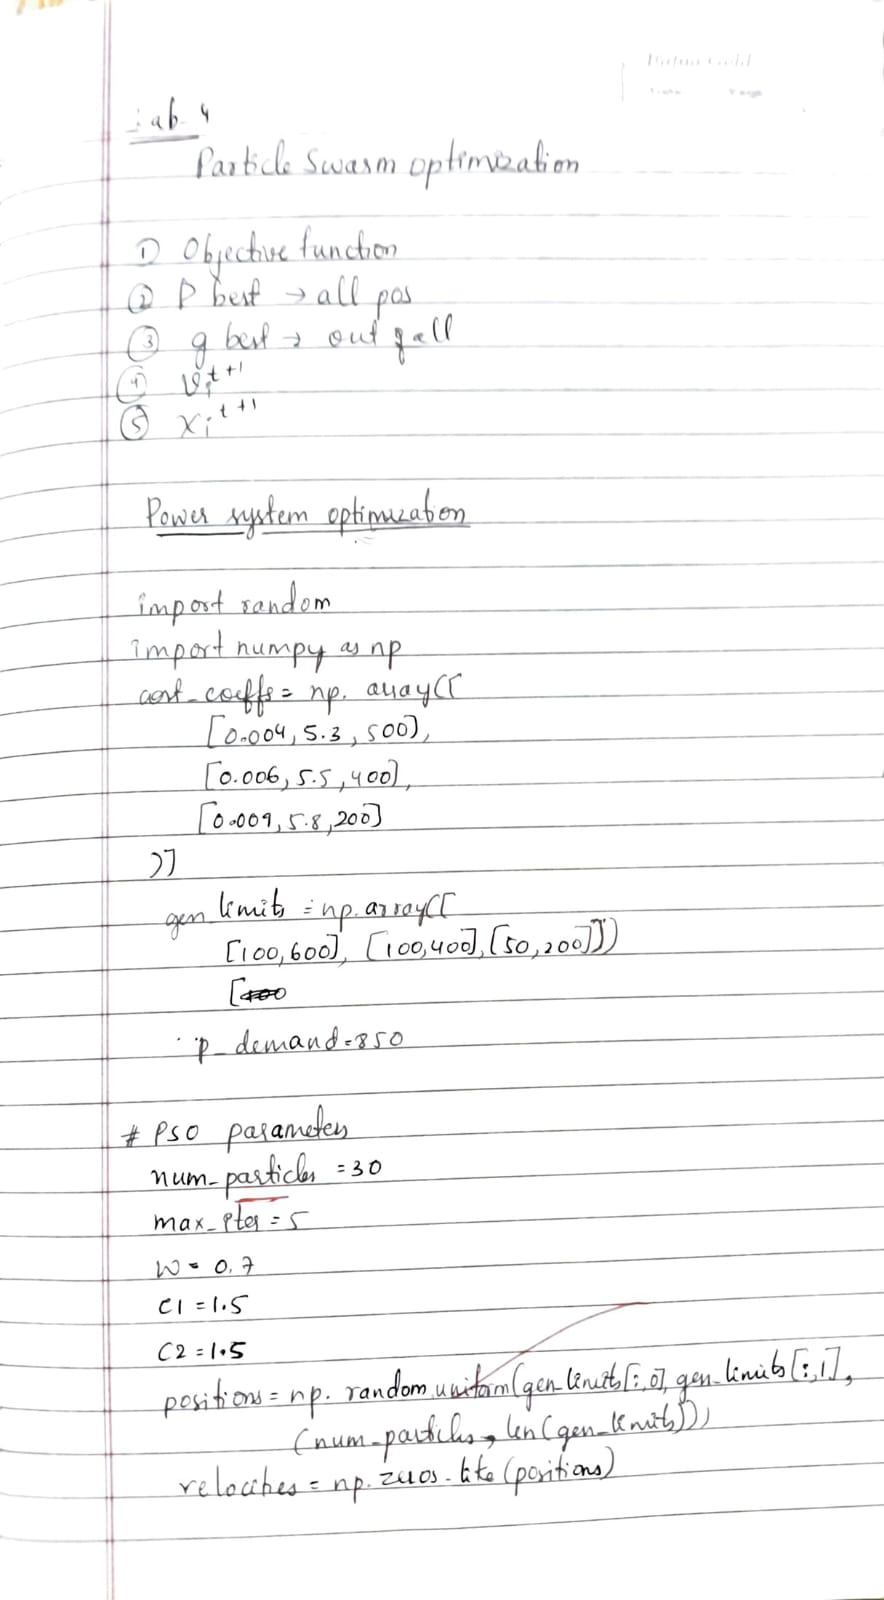 Lab 4
Particle Swarm optimization
① Objective function
② P best → all pos
③ g best → out of all
④ vᵢᵗ⁺¹
⑤ xᵢᵗ⁺¹
Power system optimization
import random
import numpy as np
cost_coeffs = np. array([
[0.004, 5.3, 500],
[0.006, 5.5, 400],
[0.009, 5.8, 200]
)]
gen limits = np.array([
[100,600], [100,400], [50,200]])
[
p_demand = 850
# PSO parameters
num_particles = 30
max_iter = 5
W = 0.7
C1 = 1.5
C2 = 1.5
positions = np. random.uniform(gen_limits[:,0], gen_limits[:,1],
(num_particles, len(gen_limits)))
velocities = np. zeros_like (positions)